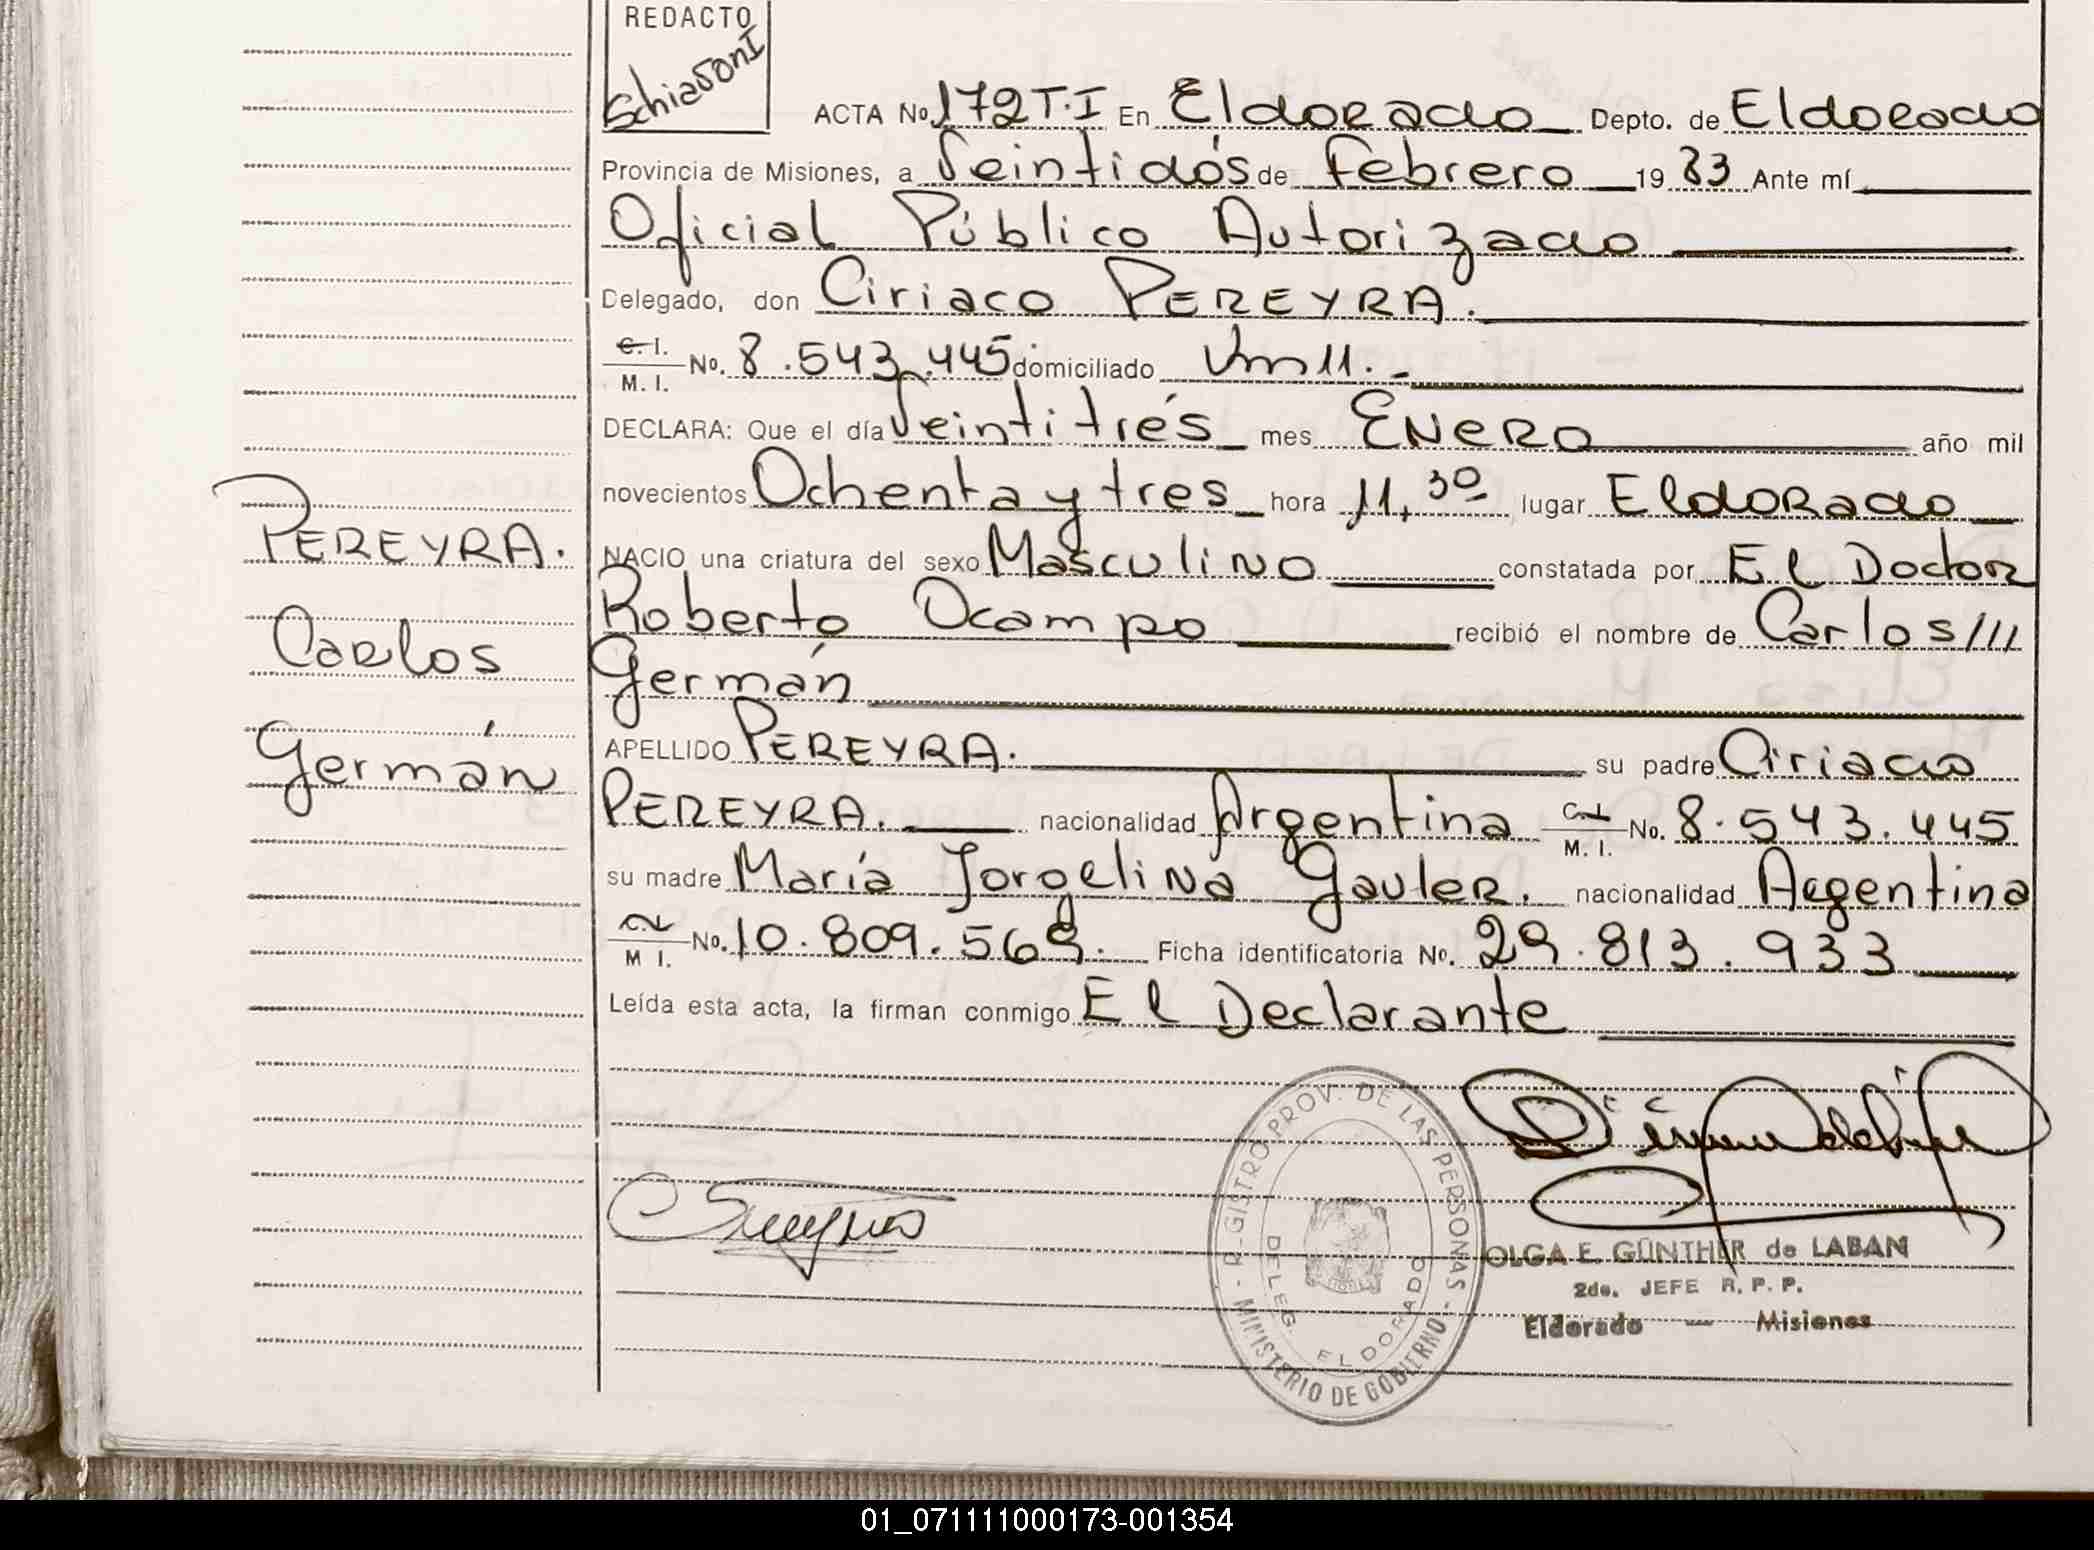 REDACTO
Schiavoni
ACTA No. 172 T·I En Eldorado Depto. de Eldorado
Provincia de Misiones, a Veintidós de Febrero 1983 Ante mí
Oficial Público Autorizado
Delegado, don Ciriaco PEREYRA.
C. I.
M. I. No. 8.543.445 domiciliado Km 11.-
DECLARA: Que el día Veintitrés mes ENERO año mil
novecientos Ochenta y tres hora 11,30 lugar Eldorado
NACIO una criatura del sexo Masculino constatada por El Doctor
Roberto Ocampo recibió el nombre de Carlos///
Germán
APELLIDO PEREYRA. su padre Ciriaco
PEREYRA. nacionalidad Argentina C.I. M. I. No. 8.543.445
su madre María Jorgelina Gauler. nacionalidad Argentina
C.I.
M I. No. 10.809.569. Ficha identificatoria No. 29.813.933
Leída esta acta, la firman conmigo El Declarante
PEREYRA.
Carlos
Germán
REGISTRO PROV. DE LAS PERSONAS - MINISTERIO DE GOBIERNO -
DELEG. ELDORADO
OLGA E. GÜNTHER de LABAN
2do. JEFE R. P. P.
Eldorado — Misiones
01_071111000173-001354